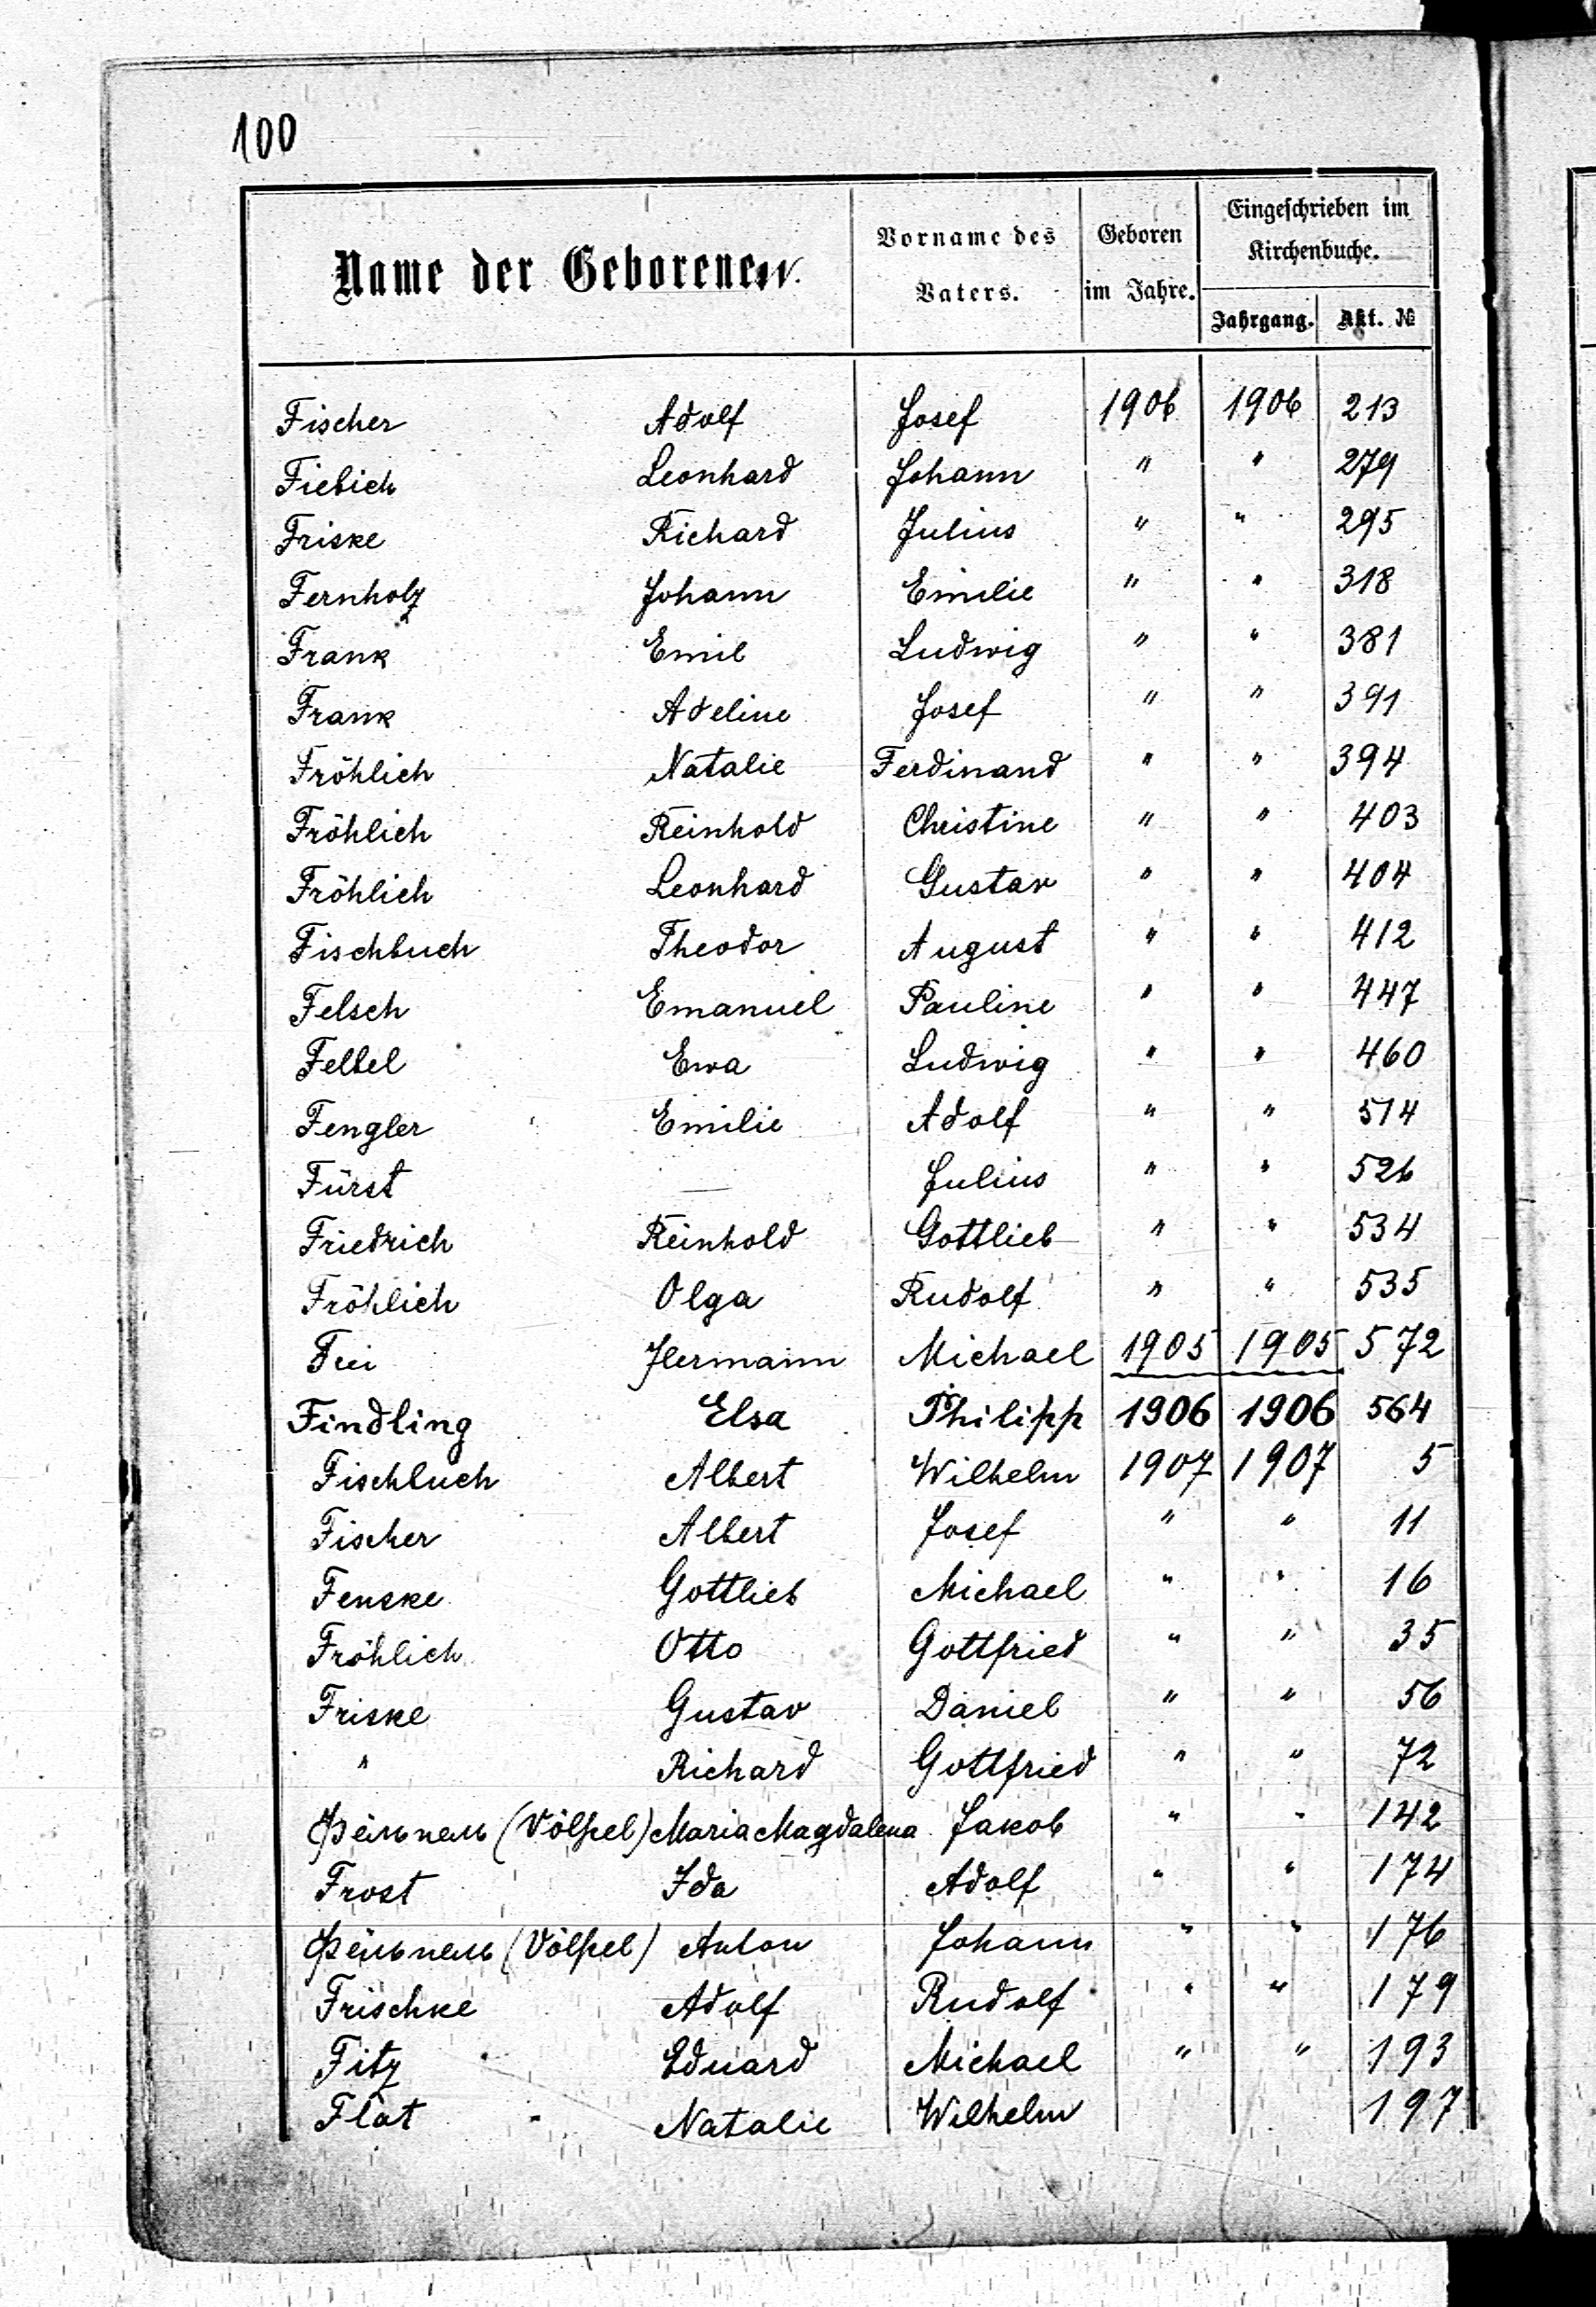 100
Name der Geborenen. Vorname des Vaters. Geboren im Jahre. Eingeschrieben im Kirchenbuche. Jahrgang. Akt. №
Fischer Adolf Josef 1906 1906 213
Fiebich Leonhard Johann " " 279
Friske Richard Julius " " 295
Fernholz Johann Emilie " " 318
Frank Emil Ludwig " " 381
Frank Adeline Josef " " 391
Fröhlich Natalie Ferdinand " " 394
Fröhlich Reinhold Christine " " 403
Fröhlich Leonhard Gustav " " 404
Fischbuch Theodor August " " 412
Felsch Emanuel Pauline " " 447
Felbel Ewa Ludwig " " 460
Fengler Emilie Adolf " " 514
Fürst — Julius " " 526
Friedrich Reinhold Gottlieb " " 534
Fröhlich Olga Rudolf " " 535
Frei Hermann Michael 1905 1905 572
Findling Elsa Philipp 1906 1906 564
Fischbuch Albert Wilhelm 1907 1907 5
Fischer Albert Josef " " 11
Fenske Gottlieb Michael " " 16
Fröhlich Otto Gottfried " " 35
Friske Gustav Daniel " " 56
" Richard Gottfried " " 72
Фёльпель (Völpel) Maria Magdalena Jakob " " 142
Frost Ida Adolf " " 174
Фёльпель (Völpel) Anton Johann " " 176
Frischke Adolf Rudolf " " 179
Fitz Eduard Michael " " 193
Flat Natalie Wilhelm 197